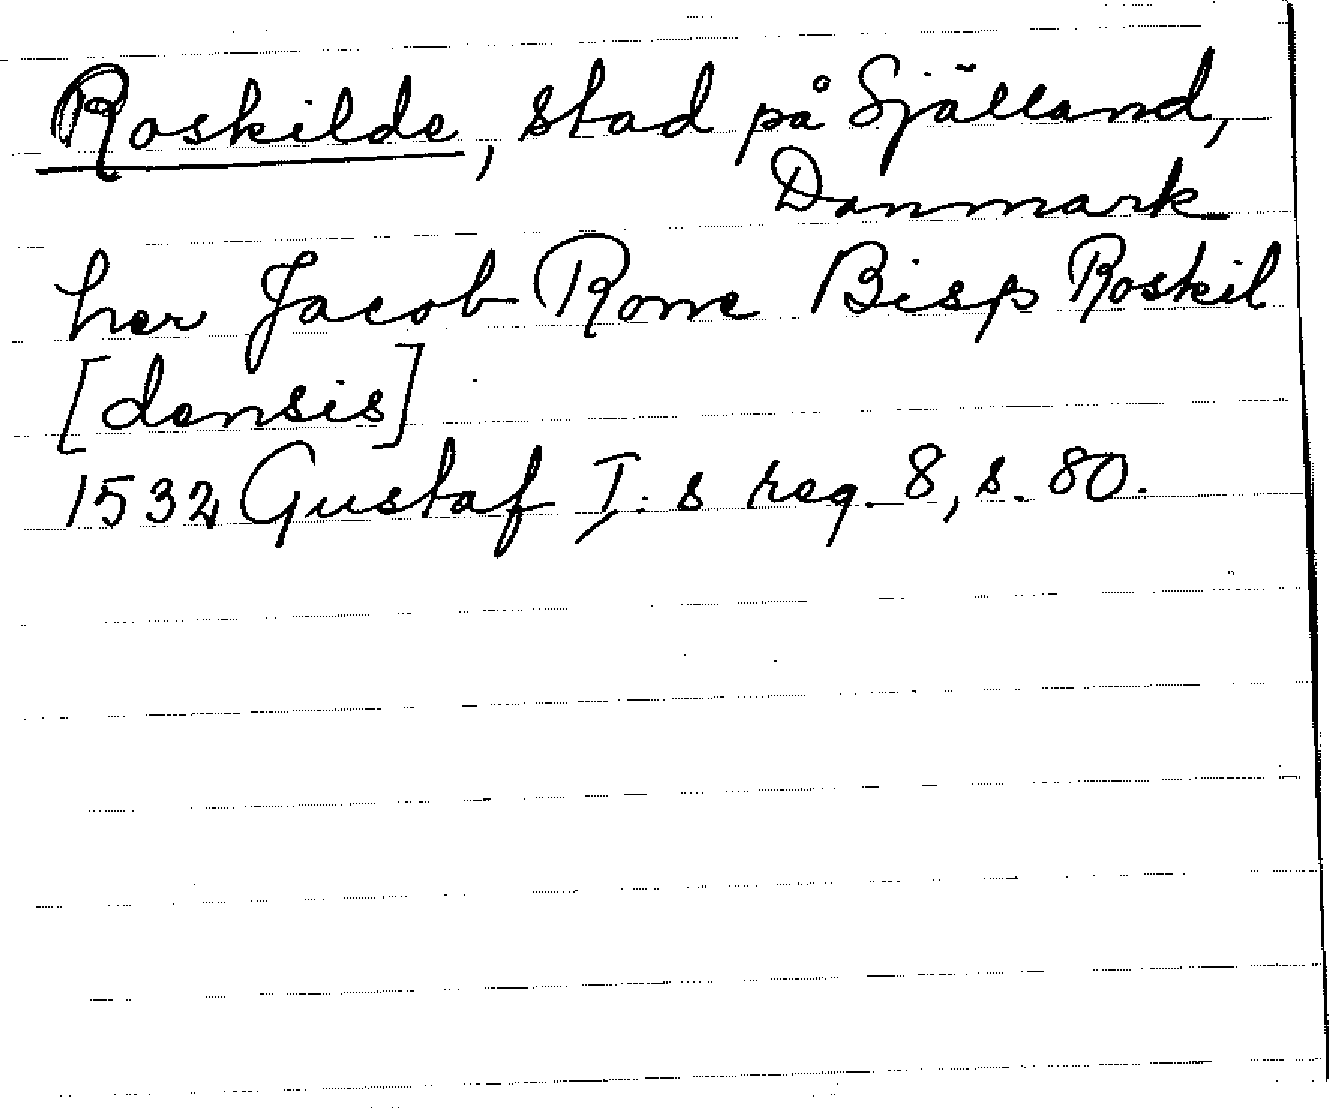 Roskilde, stad på Själland,
Danmark
her Jacob Rone Bisp Roskil
[densis]
1532 Gustaf I:s reg. 8, s. 80.